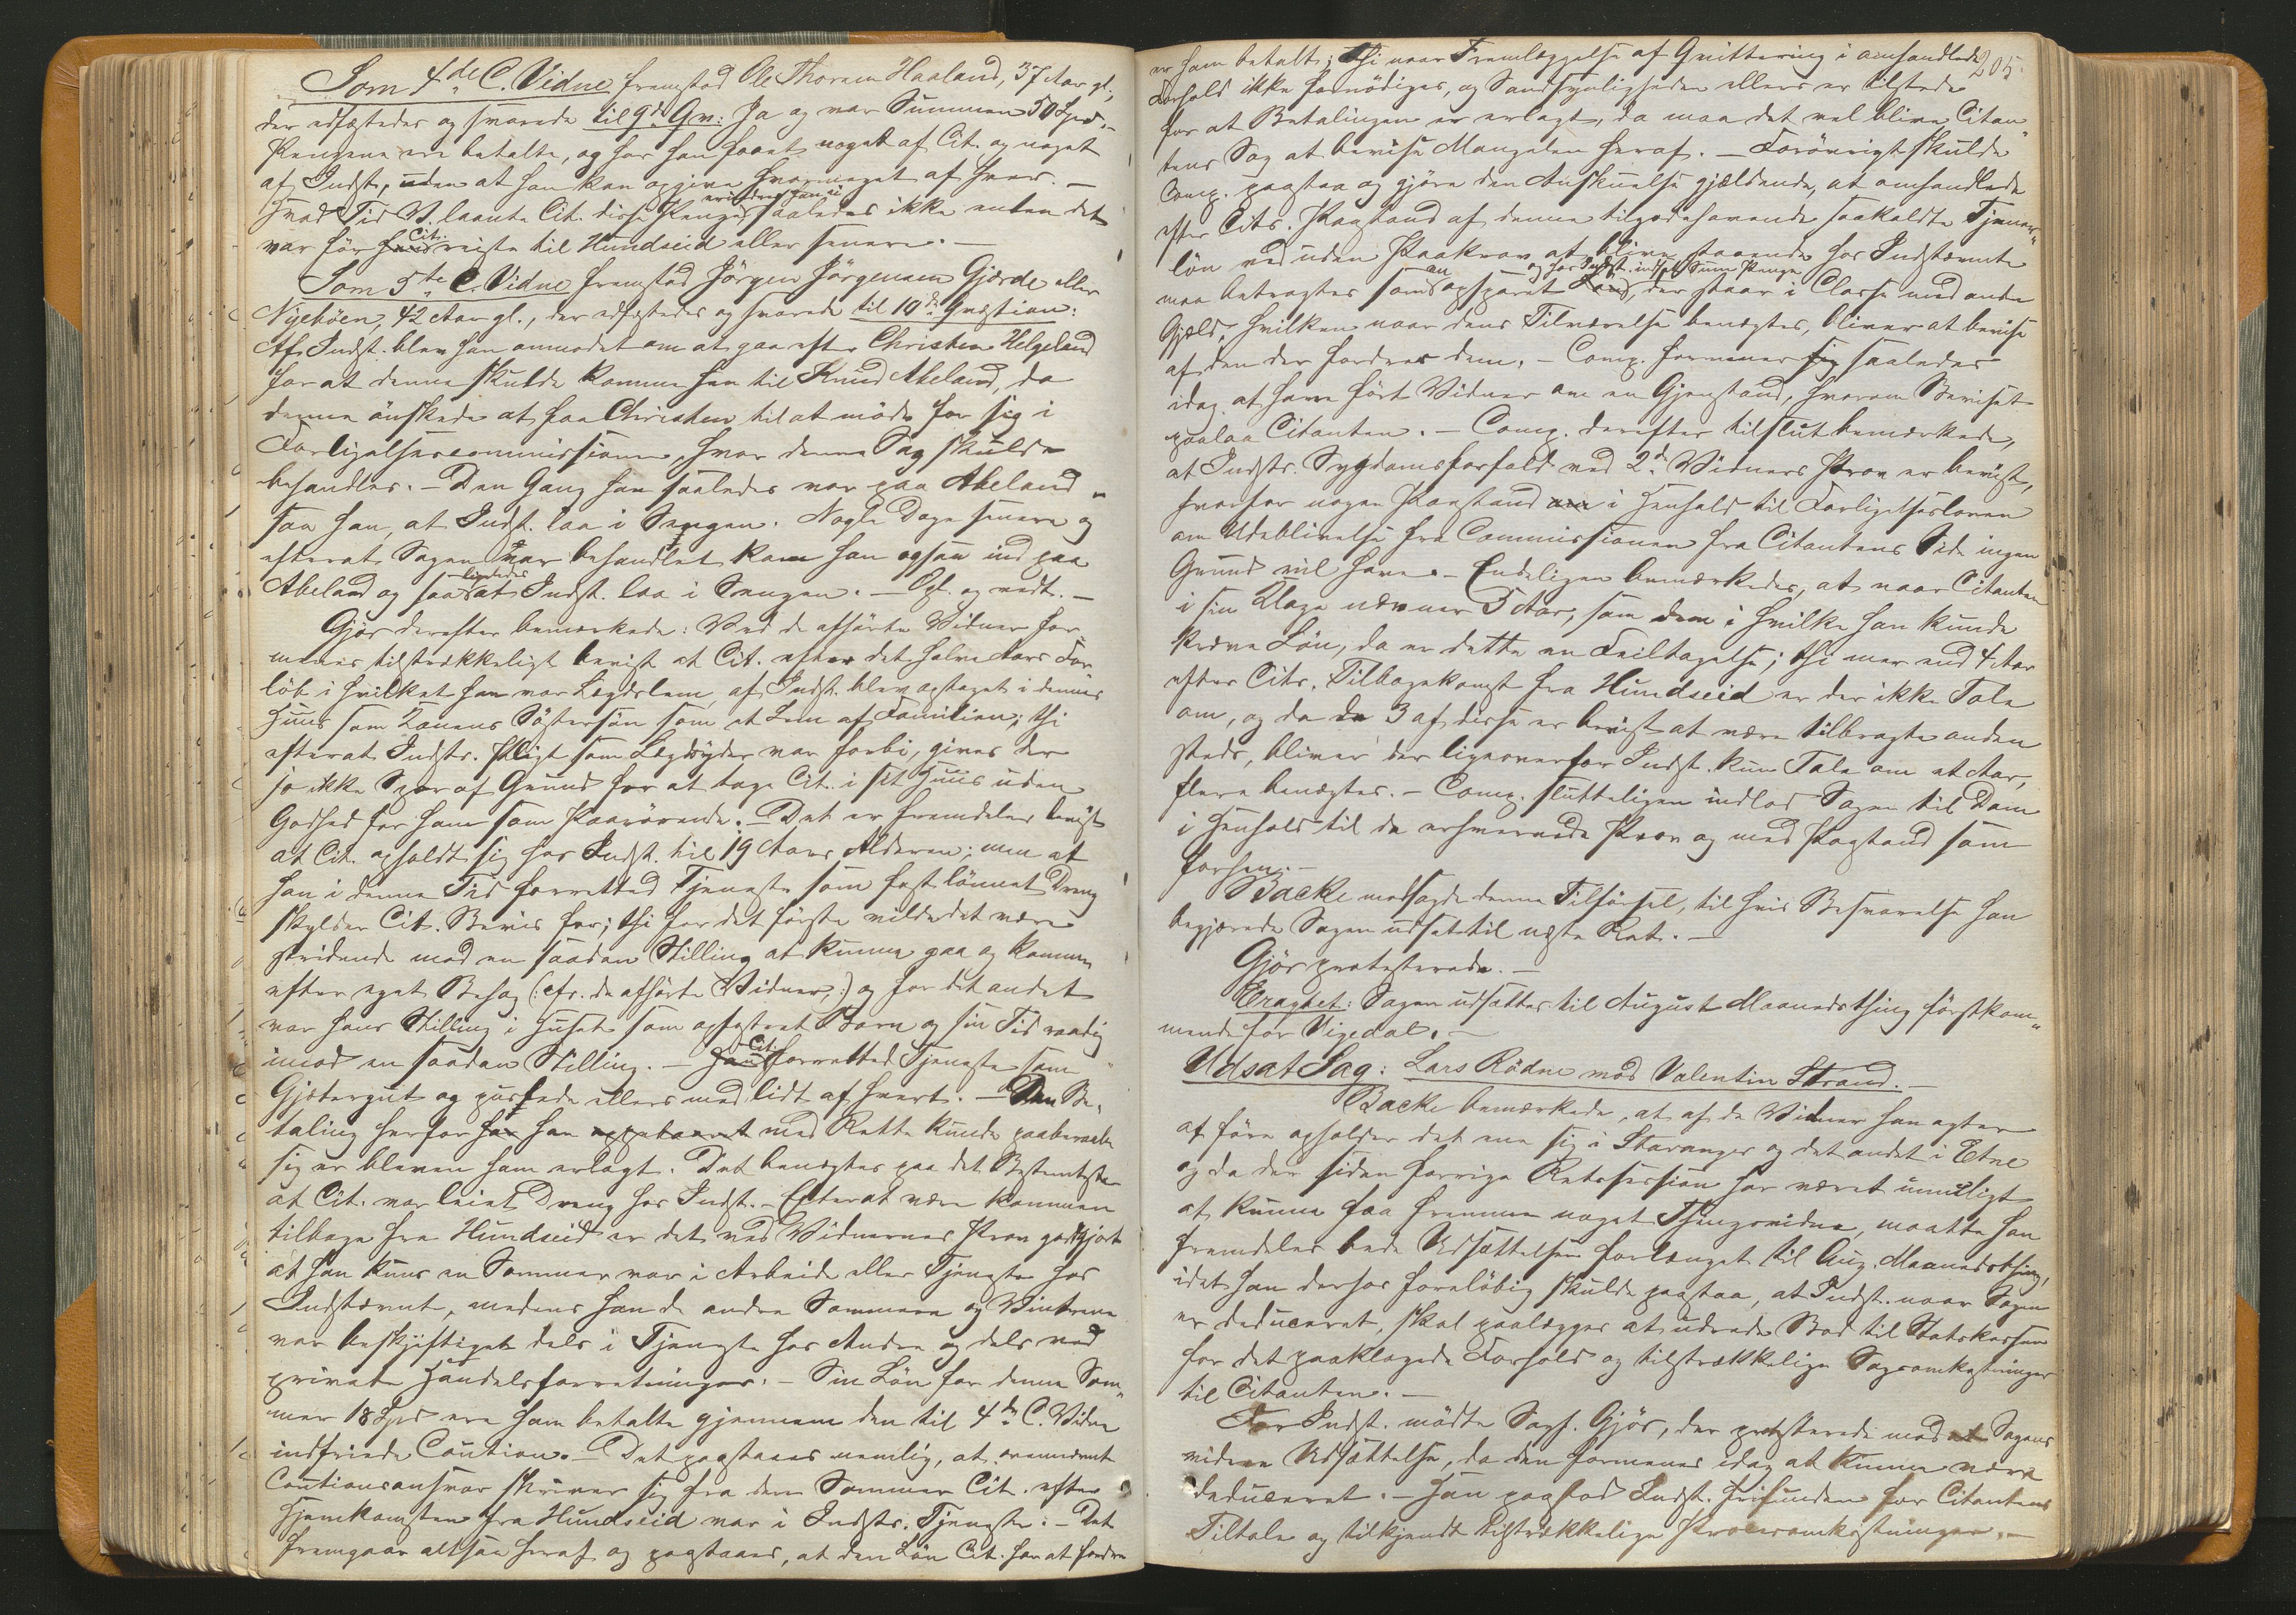 Som 4de C. Vidne fremstod Ole Thorsen Haaland, 37 Aar gl.,
der edfæstedes og svarede til 9de Qv: Ja og var Summen 50 Spd.
Pengene ere betalte, og har han faaet noget af Cit. og noget
af Indst., uden at han kan opgive hvormeget af hver. –
Hvad Tid V. laante Cit. disse Penge erindrer han ei saaledes ikke enten det
var før Cit. reiste til Hundseid eller senere. –
Som 5te C. Vidne fremstod Jörgen Jörgensen Gjærde eller
Nyebøen, 42 Aar gl., der edfæstedes og svarede til 10de Qvæstion:
Af Indst. blev han anmodet om at gaa efter Christen Helgeland
for at denne skulde komme hen til Knud Abeland, da
denne ønskede at faa Christen til at møde for sig i
Forligelsescommissionen, hvor denne Sag skulde
behandles. – Den Gang han saaledes var paa Abeland
saa han, at Indst. laa i Sengen. Nogle Dage senere og
efterat Sagen var behandlet kom han ogsaa ind paa
Abeland og saa ligeledes at Indst. laa i Sengen. – Opl. og vedt. –
Gjör derefter bemærkede: Ved de afhørte Vidner for
menes tilstrækkeligt bevist at Cit. efter det halve Aars For
løb i hvilket han var Lægdslem, af Indst. blev optaget i dennes
Huus som Konens Søstersøn som et Lem af Familien; thi
efterat Indsts. Pligt som Lægdsyder var forbi, gives der
jo ikke Spor af Grund for at tage Cit. i sit Huus uden
Godhed for ham som Paarørende. – Det er fremdeles bevist
at Cit. opholdt sig hos Indst. til 19 Aars Alderen; men at
han i denne Tid forrettede Tjeneste som fast lønnet Dreng
skylder Cit. Bevis for; thi for det første vilde det være
stridende mod en saadan Stilling at kunne gaa og komme
efter eget Behag (: cfr. de afhørte Vidner, :) og for det andet
var hans Stilling i Huset som opfostret Barn og sin Tid
imod en saadan Stilling. – Cit. forrettede Tjeneste som
Gjætergut og puslede ellers med lidt af hvert. – Den Be„
taling herfor han med Rette kunde paaberaabe
sig er bleven ham erlagt. Det benægtes paa det Bestemteste
at Cit. var leiet Dreng hos Indst. – Efterat være kommen
tilbage fra Hundseid er det ved Vidnernes Prov godtgjort
at han kuns en Sommer var i Arbeide eller Tjeneste hos
Indstævnte, medens han de andre Sommere og Vintrene
var beskjæftiget dels i Tjeneste hos Andre og dels ved
private Handelsforretninger. – Sin Løn for denne Som„
mer 18 Spd ere ham betalte gjennem den til 4de C. Vidne
indfriede Caution. – Det paastaaes nemlig, at ommeldte
Cautionsansvar skriver sig fra den Sommer Cit. efter
Hjemkomsten fra Hundseid var i Indsts. Tjeneste. – Det
fremgaar altsaa heraf og paastaaes, at den Løn Cit. har at fordre
205.
er ham betalt; thi naar Fremlæggelse af Qvittering i omhandlede
Forhold ikke fornødiges, og Sandsynligheden ellers er tilstede
for at Betalingen er erlagt, da maa det vel blive Citan„
tens Sag at bevise Mangelen heraf. – Forøvrigt skulde
Comp. paastaa og gjøre den Anskuelse gjældende, at omhandlede
efter Cits. Paastand af denne tilgodehavende saakaldte Tjener„
løn ved uden Paakrav at blive staaende hos Indstævnte
maa betragtes som en opsparet og hos Indst. indsat Sum Penge, der staar i Classe med anden
Gjæld, hvilken naar dens Tilværelse benægtes, bliver at bevise
af den der fordrer dem. – Comp. formener saaledes
idag at have ført Vidner om en Gjenstand, hvorom Beviset
paalaa Citanten. – Comp. derefter tilslut bemærkede,
at Indsts. Sygdomsforfald ved 2de Vidners Prov er bevist,
hvorfor nogen Paastand i Henhold til Forligelsesloven
om Udeblivelse fra Commissionen fra Citantens Side ingen
Grund vil have. – Endeligen bemærkedes, at naar Citanten
i sin Klage nævner 5 Aar, som dem i hvilke han kunde
kræve Løn, da er dette en Feiltagelse; thi mer end 4 Aar
efter Cits. Tilbagekomst fra Hundseid er der ikke Tale
om, og da de 3 af disse er bevist at være tilbragte anden
steds, bliver der ligeoverfor Indst. kun Tale om et Aar,
flere benægtes. – Comp. sluttelig indlod Sagen til Dom
i Henhold til de erhvervede Prov og med Paastand som
forhen. –
Backe modsagde denne Tilførsel, til hvis Besvarelse han
begjærede Sagen udsat til næste Ret. –
Gjör protesterede. –
Eragtet: Sagen udsættes til August Maanedsthing førstkom„
mende for Vigedal. –
Udsat Sag: Lars Rødne mod Valentin Strand. –
Backe bemærkede, at af de Vidner han agter
at føre opholder det ene sig i Stavanger og det andet i Etne
og da der siden forrige Retssession har været umuligt
at kunne faa fremme noget Thingsvidne, maatte han
fremdeles bede Udsættelsen forlænget til Aug. Maanedsthing,
idet han derhos foreløbig skulde paastaa, at Indst. naar Sagen
er deduceret, skal paalægges at udrede Bod til Statskassen
for det paaklagede Forhold og tilstrækkelige Sagsomkostninger
til Citanten. –
For Indst. mødte Sagf. Gjör, der protesterede mod Sagens
videre Udsættelse, da den formenes idag at kunne være
deduceret. – Han paastod Indst. frifunden for Citantens
Tiltale og tilkjendt tilstrækkelige Procesomkostninger. –